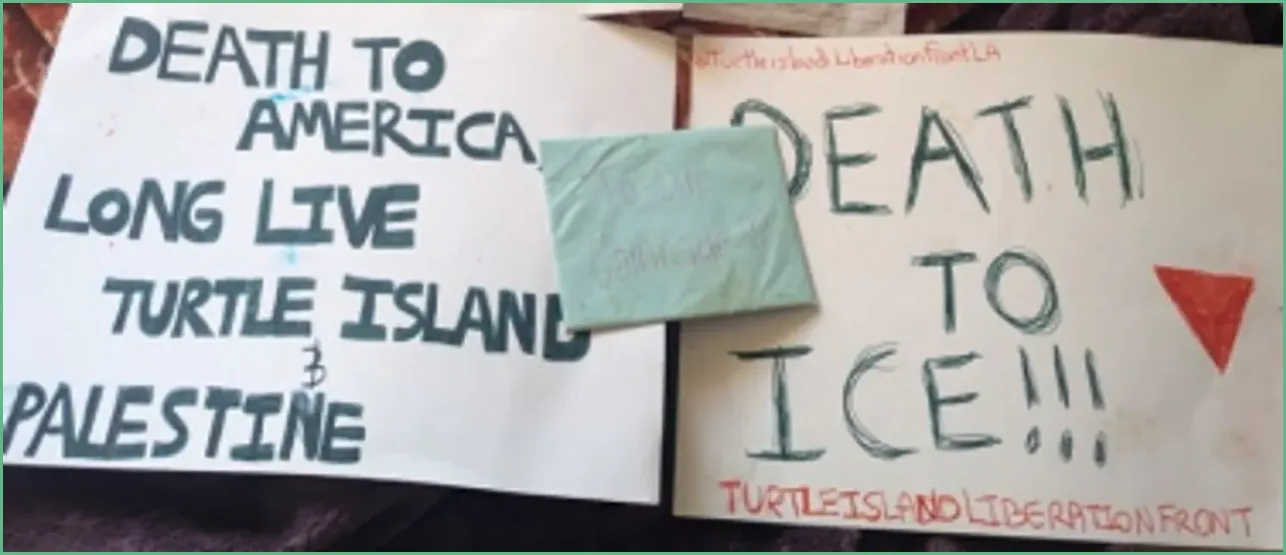 DEATH TO
AMERICA
LONG LIVE
TURTLE ISLAND
&
PALESTINE
@TurtleislandLiberationfrontLA
DEATH
TO
ICE!!!
TURTLEISLANDLIBERATIONFRONT